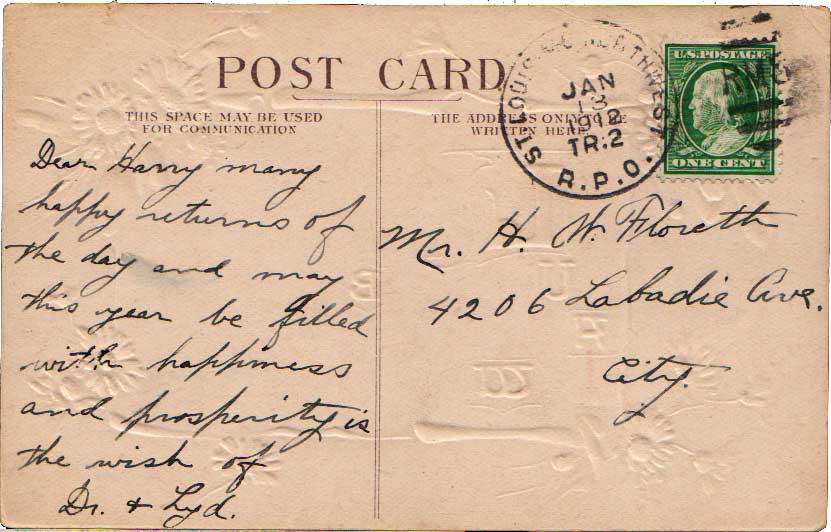 POST CARD
THIS SPACE MAY BE USED
FOR COMMUNICATION
THE ADDRESS ONLY
WRITTEN HERE
ST LOUIS NORTHWEST
JAN
13
1912
TR.2
R.P.O.
RMS
U.S. POSTAGE
ONE CENT
Dear Harry many
happy returns of
the day and may
this year be filled
with happiness
and prosperity is
the wish of
Dr. + Lyd.
Mr. H. W. Floreth
4206 Labadie Ave.
City.